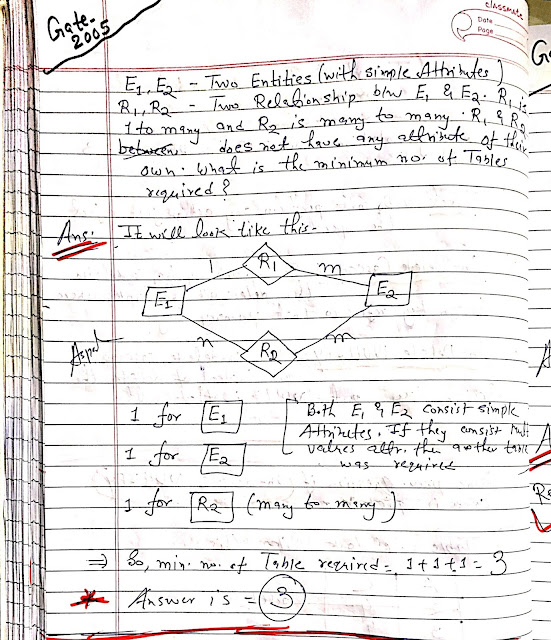 classmate
Date
Page
Gate-
2005
E1, E2 - Two Entities (with simple Attributes)
R1, R2 - Two Relationship b/w E1 & E2. R1 is
1 to many and R2 is many to many. R1 & R2
between does not have any attribute of their
own. What is the minimum no. of Tables
required?
Ans: It will look like this-
R1
1 m
E1 E2
n m
R2
1 for E1
1 for E2
Both E1 & E2 consist simple
Attributes. If they consist Multi
values attr. then another table
was required
1 for R2 (many to many)
⇒ So, min. no. of Table required = 1+1+1 = 3
* Answer is = 3